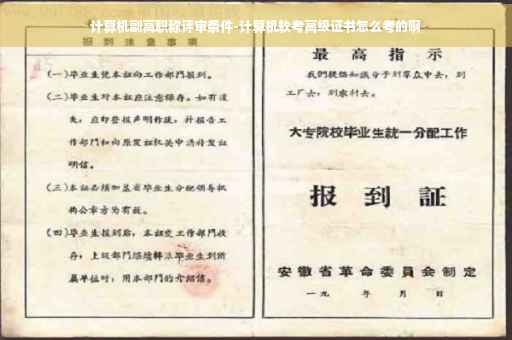 计算机副高职称评审条件-计算机软考高级证书怎么考的啊
报到注意事项
(一)毕业生凭本证向工作部门报到。
(二)毕业生对本证应注意保存。如有遗
失,应即登报声明作废,并报告工
作部门和向原发证机关申请补发证
明信。
(三)本证必须加盖省毕业生分配领导机
构公章方为有效。
(四)毕业生报到后,本证交工作部门收
存;上级部门继续转派毕业生到所
属单位时,用本部门的介绍信。
最高指示
我们提倡知识分子到群众中去,到
工厂去,到农村去。
大专院校毕业生统一分配工作
报到证
安徽省革命委员会制定
一九 年 月 日